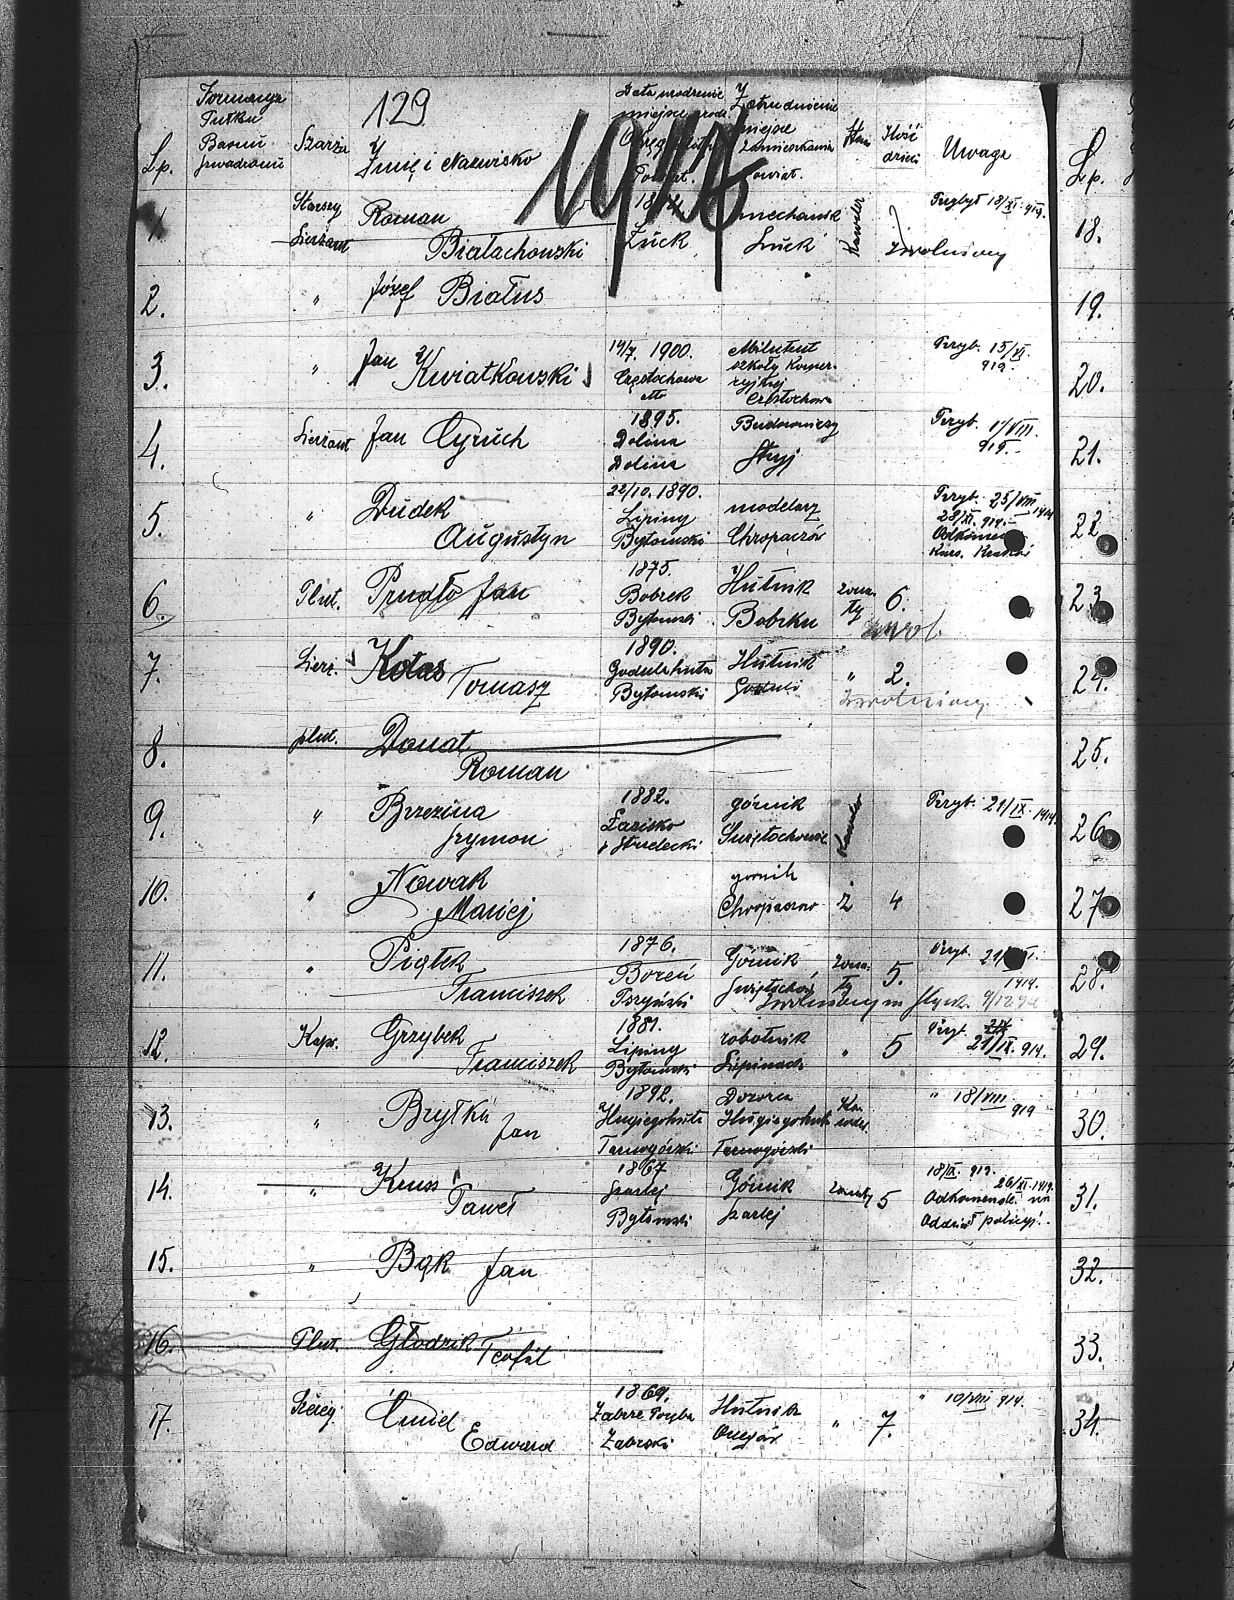 129
1914
Formacya
Pułku
Baonu
Szwadronu
Data urodzenia
miejsce
Zatrudnienie
miejsce
zamieszkania
Powiat.
Lp.
Szarża
Imię i Nazwisko
Stan
Ilość
dzieci
Uwaga
Lp.
1. Starszy Sierżant Roman Białachowski Łuck mechanik Łuck Kawaler Przybył 18/XI. 919. Zwolniony 18.
2. " Józef Białus 19.
3. " Jan Kwiatkowski 19/7. 1900. Częstochowa szkoły Częstochowa Przyb. 15/XI. 919. 20.
4. Sierżant Jan Cyruch 1895. Dolina Dolina Budowniczy Stryj Przyb. 17/VIII. 919. 21.
5. " Dudek Augustyn 22/10. 1890. Lipiny Bytomski modelarz Chropaczów Przyb. 25/VIII 1919 28/XI. 919. Kurs. Kraków 22
6. Plut. Prudło Jan 1875. Bobrek Bytomski Hutnik Bobrku żona-ty 6. zwol. 23
7. Sierż. Kolas Tomasz 1890. Godulahuta Bytomski Hutnik Goduli " 2. Zwolniony. 24.
8. plut. Donat Roman 25.
9. " Brzezina Szymon 1882. Łazisko górnik Świętochłowice Przyb. 21/IX. 1919. 26
10. " Nowak Maciej górnik Chropaczów ż 4 27
11. " Piątek Franciszek 1876. Boreń Górnik żona-ty 5. Przyb. 1919. Zwolniony 28.
12. Kapr. Grzybek Franciszek 1881. Lipiny Bytomski robotnik Lipinach " 5 Przyb. 21/IX. 919. 29.
13. " Brytka Jan 1892. Hugiegohuta Tarnogórski Dozorca Hugiegohuta Tarnogórski Ka-waler " 18/VIII 919 30.
14. " Kruss Paweł 1867 Szarlej Bytomski Górnik Szarlej żonaty 5 18/IX. 919. 26/XI. 1919. Odkomend. na Oddział policyj. 31.
15. " Bąk Jan 32.
16. Plut. Głodzik Teofil 33.
17. Szereg. Ćmiel Edward 1869. Zabrze Poręba Zabrski Hutnik " 7. " 10/VIII 919. 34.